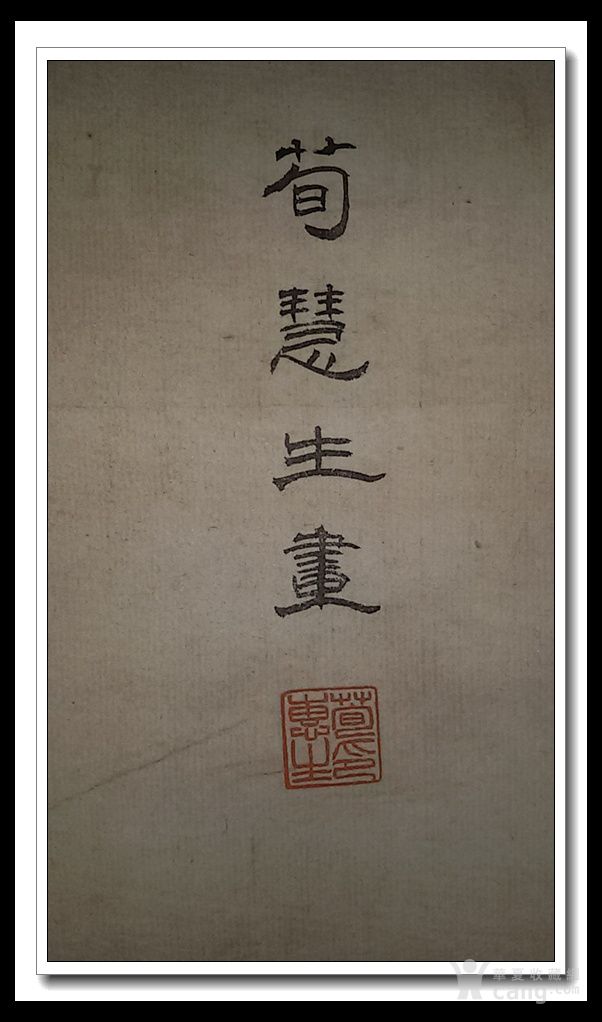 荀慧生畫
荀慧生印
華夏收藏網
cang.com